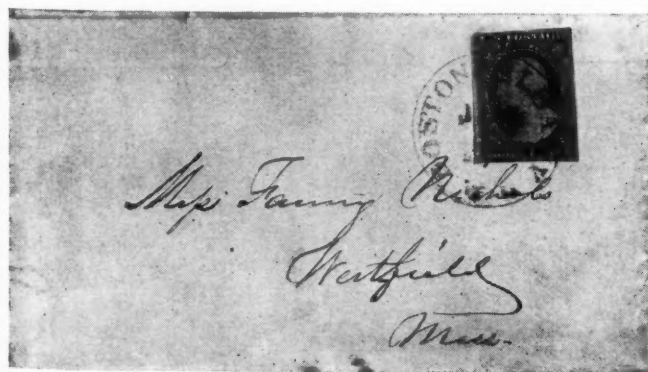 BOSTON
Miss Fanny Nichols
Westfield
Mass.